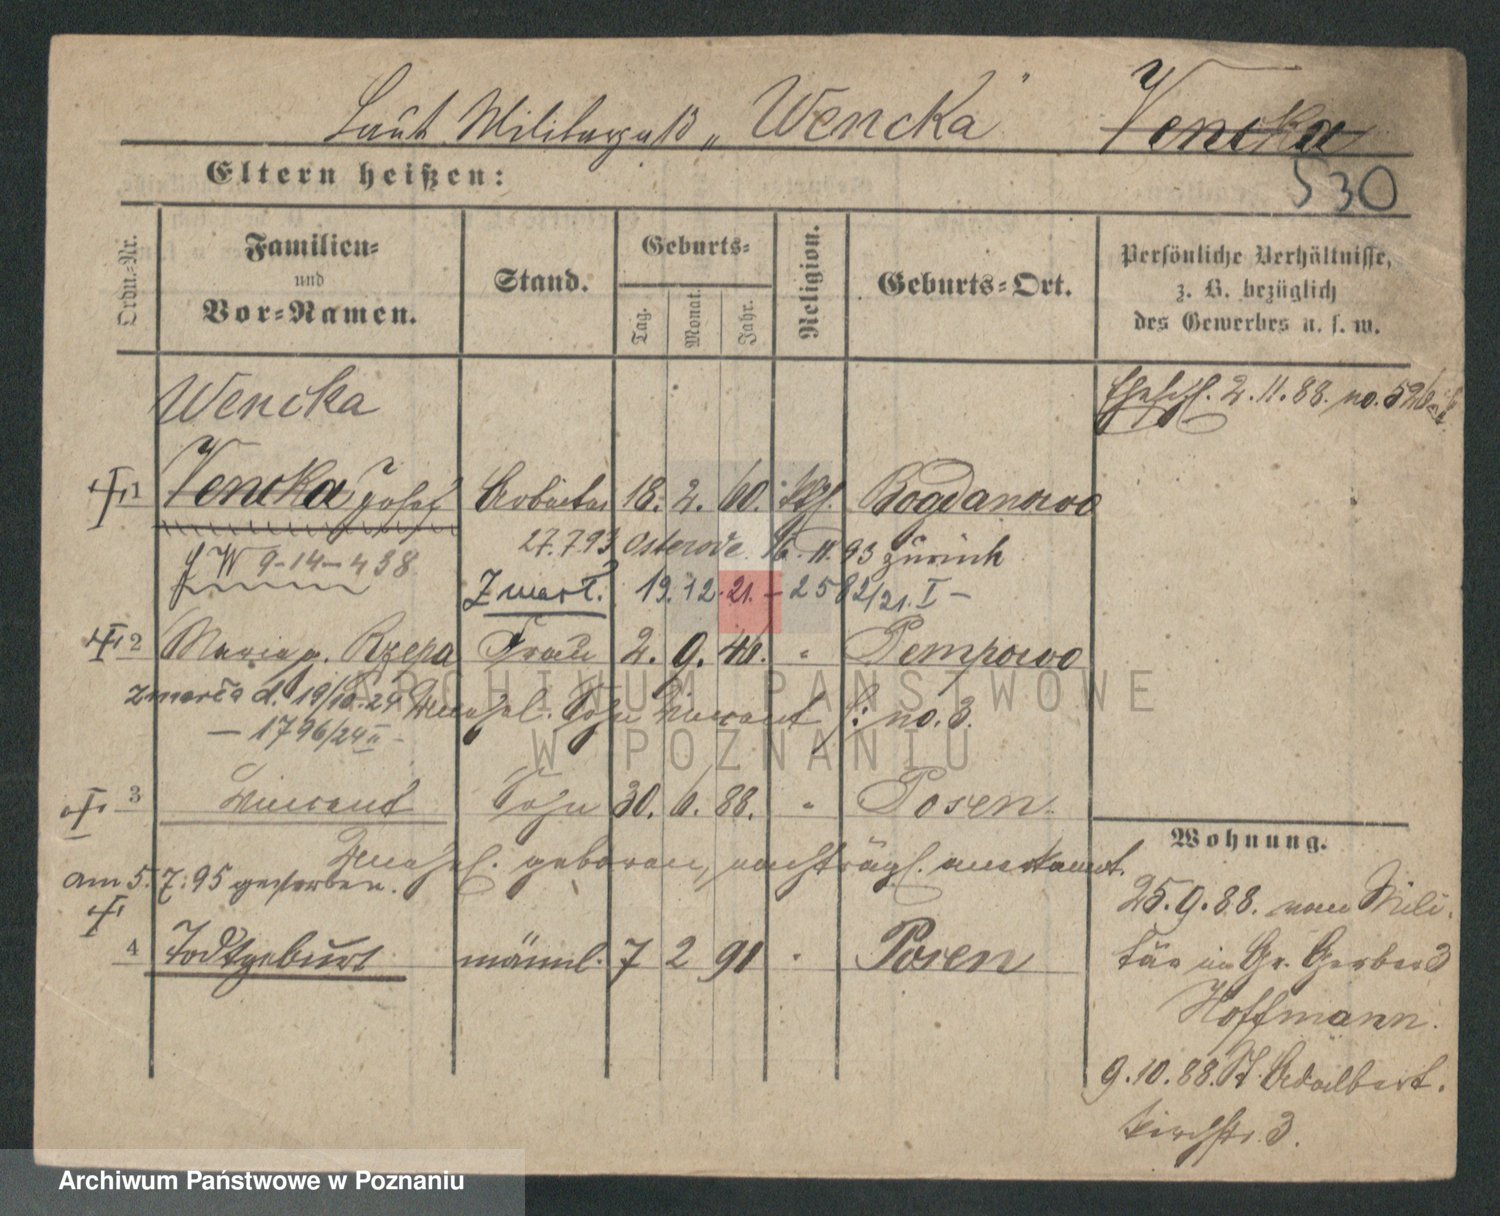 Laut Militärpaß „Wencka" Vencka
530
Eltern heißen:
Ordn.-Nr.
Familien-
und
Vor-Namen.
Stand.
Geburts-
Tag.
Monat.
Jahr.
Religion.
Geburts-Ort.
Persönliche Verhältnisse,
z. B. bezüglich
des Gewerbes u. s. w.
Wencka
Ehesch. 2.11.88. no. 526
1 Vencka Josef Arbeiter 18. 2. 60. kth. Bogdanowo
27.7.93 Osterode 16.11.93 Zürich
J W 9-14-438
Zmarł. 19.12.21. - 2582/21. I -
2 Maria g. Rzepa Frau 2. 9. 48. " Pempowo
zmarła d. 19/10.24 Unehel. Sohn Vincent f: no. 3.
- 1796/24 II -
3 Vincent Sohn 30. 6. 88. " Posen
Unehel. geboren, nachträgl. anerkannt.
am 5. 7. 95 gestorben.
4 Todtgeburt männl. 7 2 91 " Posen
Wohnung.
25.9.88. vom Mili-
tär in Gr. Gerber 3
Hoffmann.
9.10.88. St. Adalbert-
kirchstr. 3.
ARCHIWUM PAŃSTWOWE
W POZNANIU
Archiwum Państwowe w Poznaniu